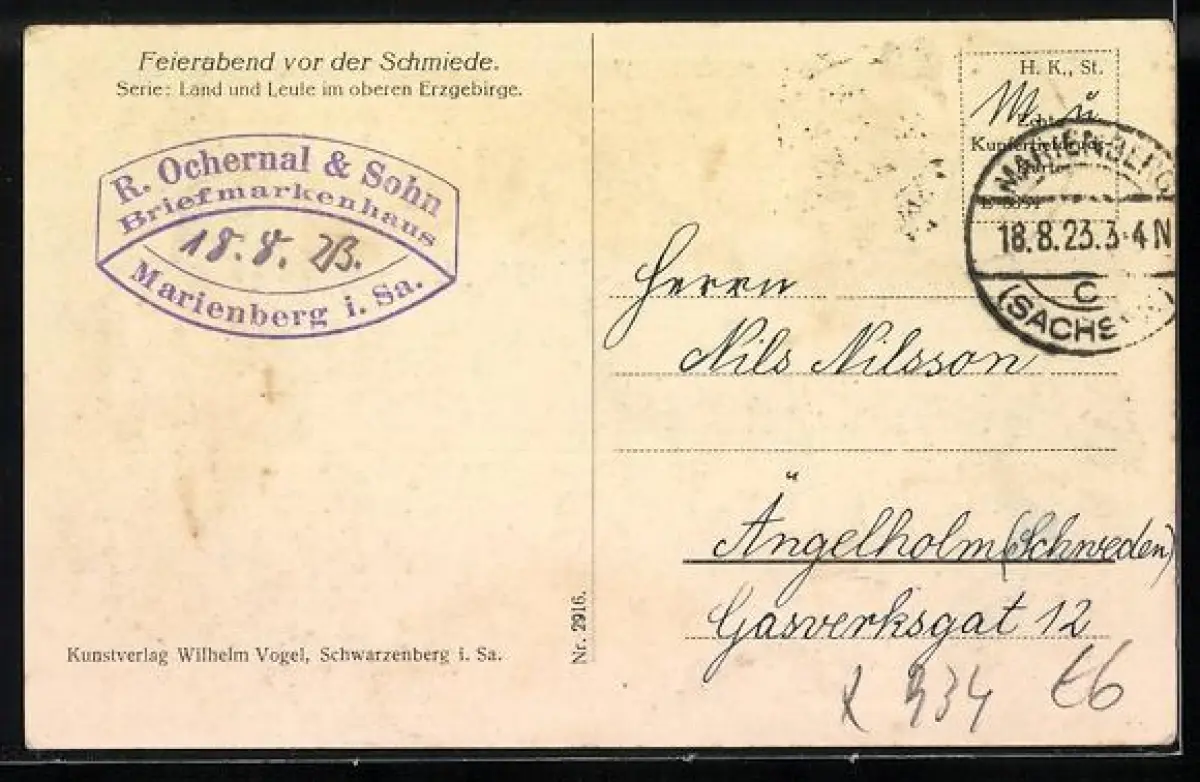 Feierabend vor der Schmiede.
Serie: Land und Leute im oberen Erzgebirge.
R. Ochernal & Sohn
Briefmarkenhaus
18. 8. 23.
Marienberg i. Sa.
Kunstverlag Wilhelm Vogel, Schwarzenberg i. Sa.
Nr. 2916.
H. K., St.
MARIENBERG
18.8.23.3-4N
C
(SACHSEN)
Herrn
Nils Nilsson
Ängelholm (Schweden)
Gasverksgat 12
934